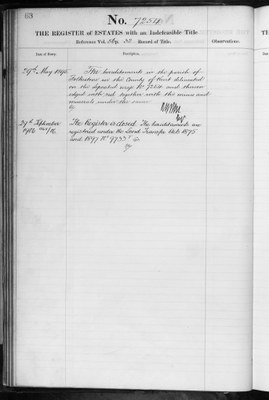 63
No. 7254
THE REGISTER of ESTATES with an Indefeasible Title
Reference Vol. Fo. 52 Record of Title.
Observations.
Date of Entry.
Description.
29th May 1895
The hereditaments in the parish of
Folkestone in the County of Kent delineated
on the deposited map No. and thereon
edged with red together with the mines and
minerals under the same
The Register is closed. The hereditaments are
registered under the Land Transfer Acts 1875
and 1897 No. 9733